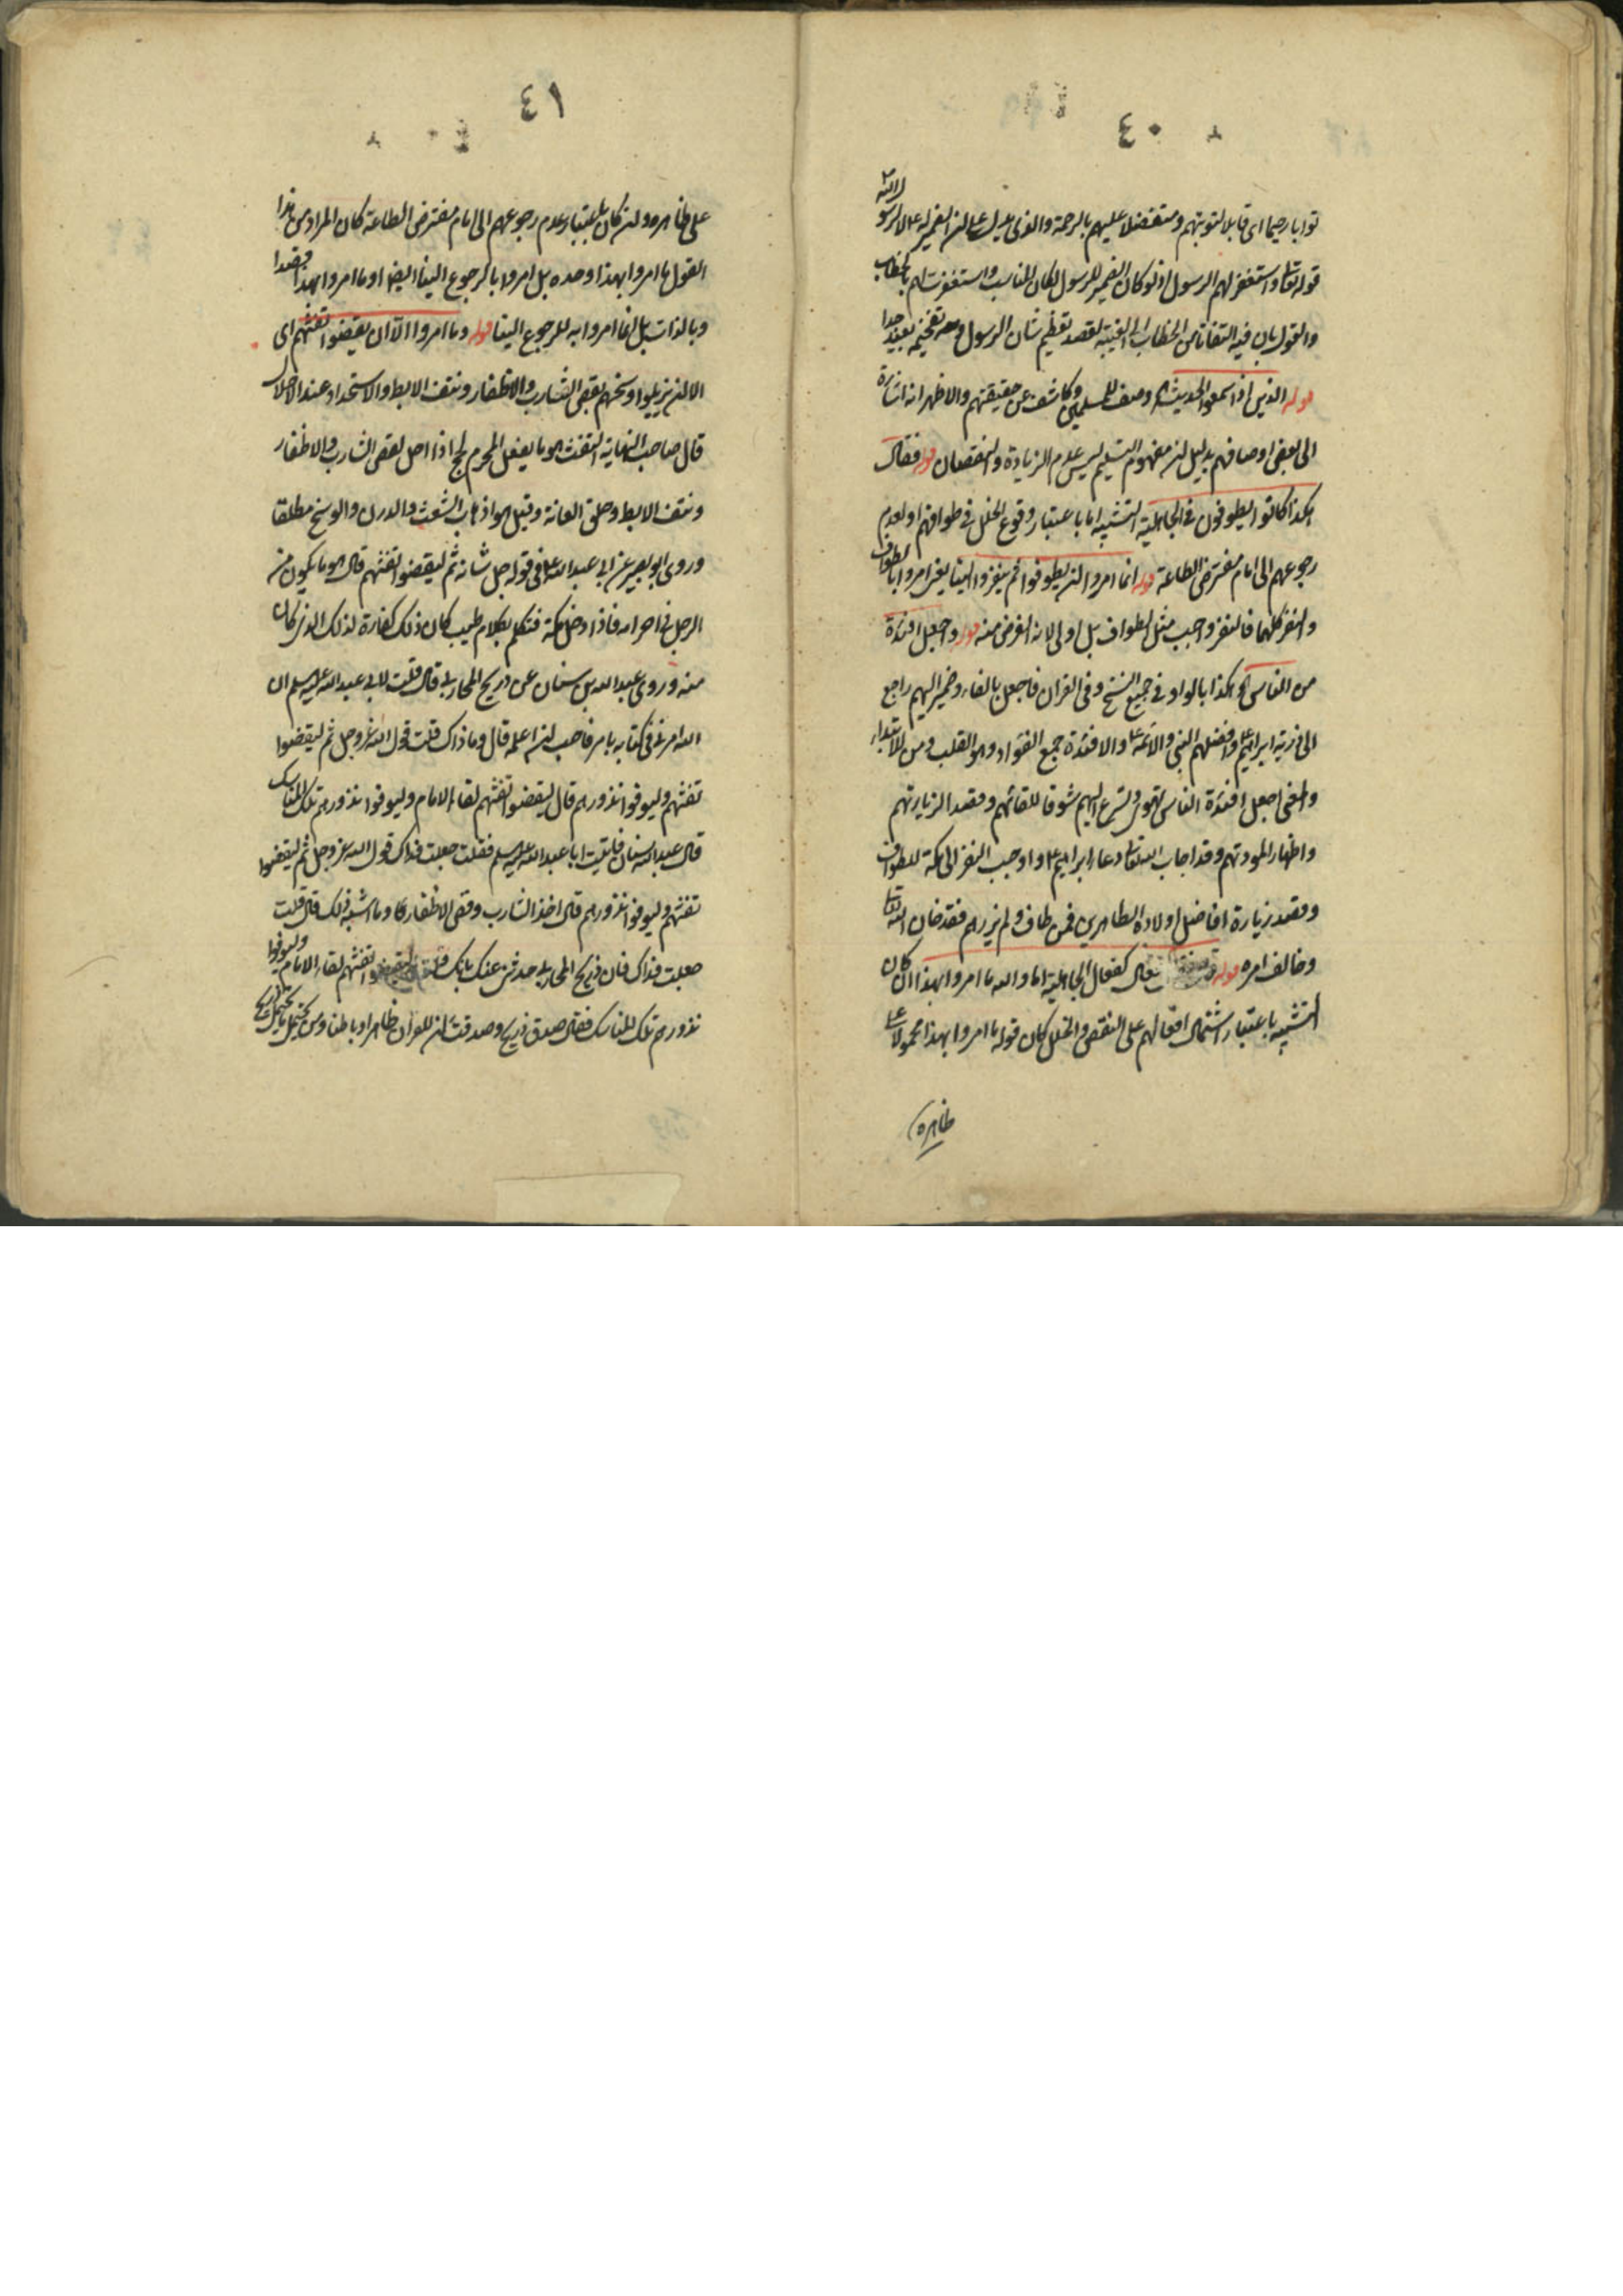 ٤٠
توابا رحيما اى قابلا لتوبتهم ومتفضلا عليهم بالرحمة والذى يدل على ان الضمير له لا لرسول الله
قوله تعا واستغفر لهم الرسول اذ لو كان الضمير للرسول لكان المناسب واستغفرت لهم بالخطاب
والقول بان فيه التفاتا من الخطاب الى الغيبة لقصد تعظيم شان الرسول وتفخيمه بعيد جدا
قوله الذين اذا سمعوا الحديث اه وصف للمسلمين وكاشف عن حقيقتهم والاظهر انه اشارة
الى بعض اوصافهم بدليل ان مفهوم التسليم ليس عدم الزيادة والنقصان قوله فقال
هكذا كانوا يطوفون فى الجاهلية التشبيه اما باعتبار وقوع الخلل فى طوافهم او لعدم
رجوعهم الى امام مفترض الطاعة قوله انما امروا ان يطوفوا ثم ينفروا الينا يعنى امروا بالطواف
والنفر كليهما فالنفر واجب مثل الطواف بل اولى لانه الغرض منه قوله واجعل افئدة
من الناس اه هكذا بالواو فى جميع النسخ وفى القران فاجعل بالفاء وضمير اليهم راجع
الى ذرية ابراهيم ع وافضلهم النبى والائمة ع والافئدة جمع الفؤاد وهو القلب ومن للابتداء
والمعنى اجعل افئدة الناس تهوى وتسرع اليهم شوقا للقائهم وقصد الزيارتهم
واظهار المودتهم وقد اجاب الله تعا دعاء ابراهيم ع واوجب النفر الى مكة للطواف
وقصد زيارة افاضل اولاده الطاهرين فمن طاف ولم يزرهم فقد خان الله تعا
وخالف امره قوله فقال كفعال الجاهلية اما والله ما امروا بهذا ان كان
التشبيه باعتبار اشتمال افعالهم على النقص والخلل كان قوله ما امروا بهذا محمولا على
ظاهره
٤١
على ظاهره وان كان باعتبار عدم رجوعهم الى امام مفترض الطاعة كان المراد من هذا
القول ما امروا بهذا وحده بل امروا بالرجوع الينا ايضا او ما امروا بهذا قصدا
وبالذات بل انما امروا به للرجوع الينا قوله وما امروا الا ان يقضوا تفثهم اى
الا ان يزيلوا وسخهم بقص الشارب والاظفار ونتف الابط والاستحداد عند الاحلال
قال صاحب النهاية التفث هو ما يفعل المحرم بالحج اذا احل كقص الشارب والاظفار
ونتف الابط وحلق العانة وقيل هو اذهاب الشعث والدرن والوسخ مطلقا
وروى ابو بصير عن ابى عبد الله ع فى قوله جل شانه ثم ليقضوا تفثهم قال هو ما يكون من
الرجل فى احرامه فاذا دخل مكة فتكلم بكلام طيب كان ذلك كفارة لذلك الذى كان
منه وروى عبد الله بن سنان عن ذريح المحاربى قال قلت لابى عبد الله عليه السلم ان
الله امرنى فى كتابه بامر فاحب ان اعلمه قال وما ذاك قلت قول الله عز وجل ثم ليقضوا
تفثهم وليوفوا نذورهم قال ليقضوا تفثهم لقاء الامام وليوفوا نذورهم تلك المناسك
قال عبد الله بن سنان فاتيت ابا عبد الله عليه السلم فقلت جعلت فداك قول الله عز وجل ثم ليقضوا
تفثهم وليوفوا نذورهم قال اخذ الشارب وقص الاظفار وما اشبه ذلك قال قلت
جعلت فداك فان ذريح المحاربى حدثنى عنك بانك قلت ليقضوا تفثهم لقاء الامام وليوفوا
نذورهم تلك المناسك فقال صدق ذريح وصدقت ان للقران ظاهرا وباطنا ومن يحتمل ما يحتمل ذريح